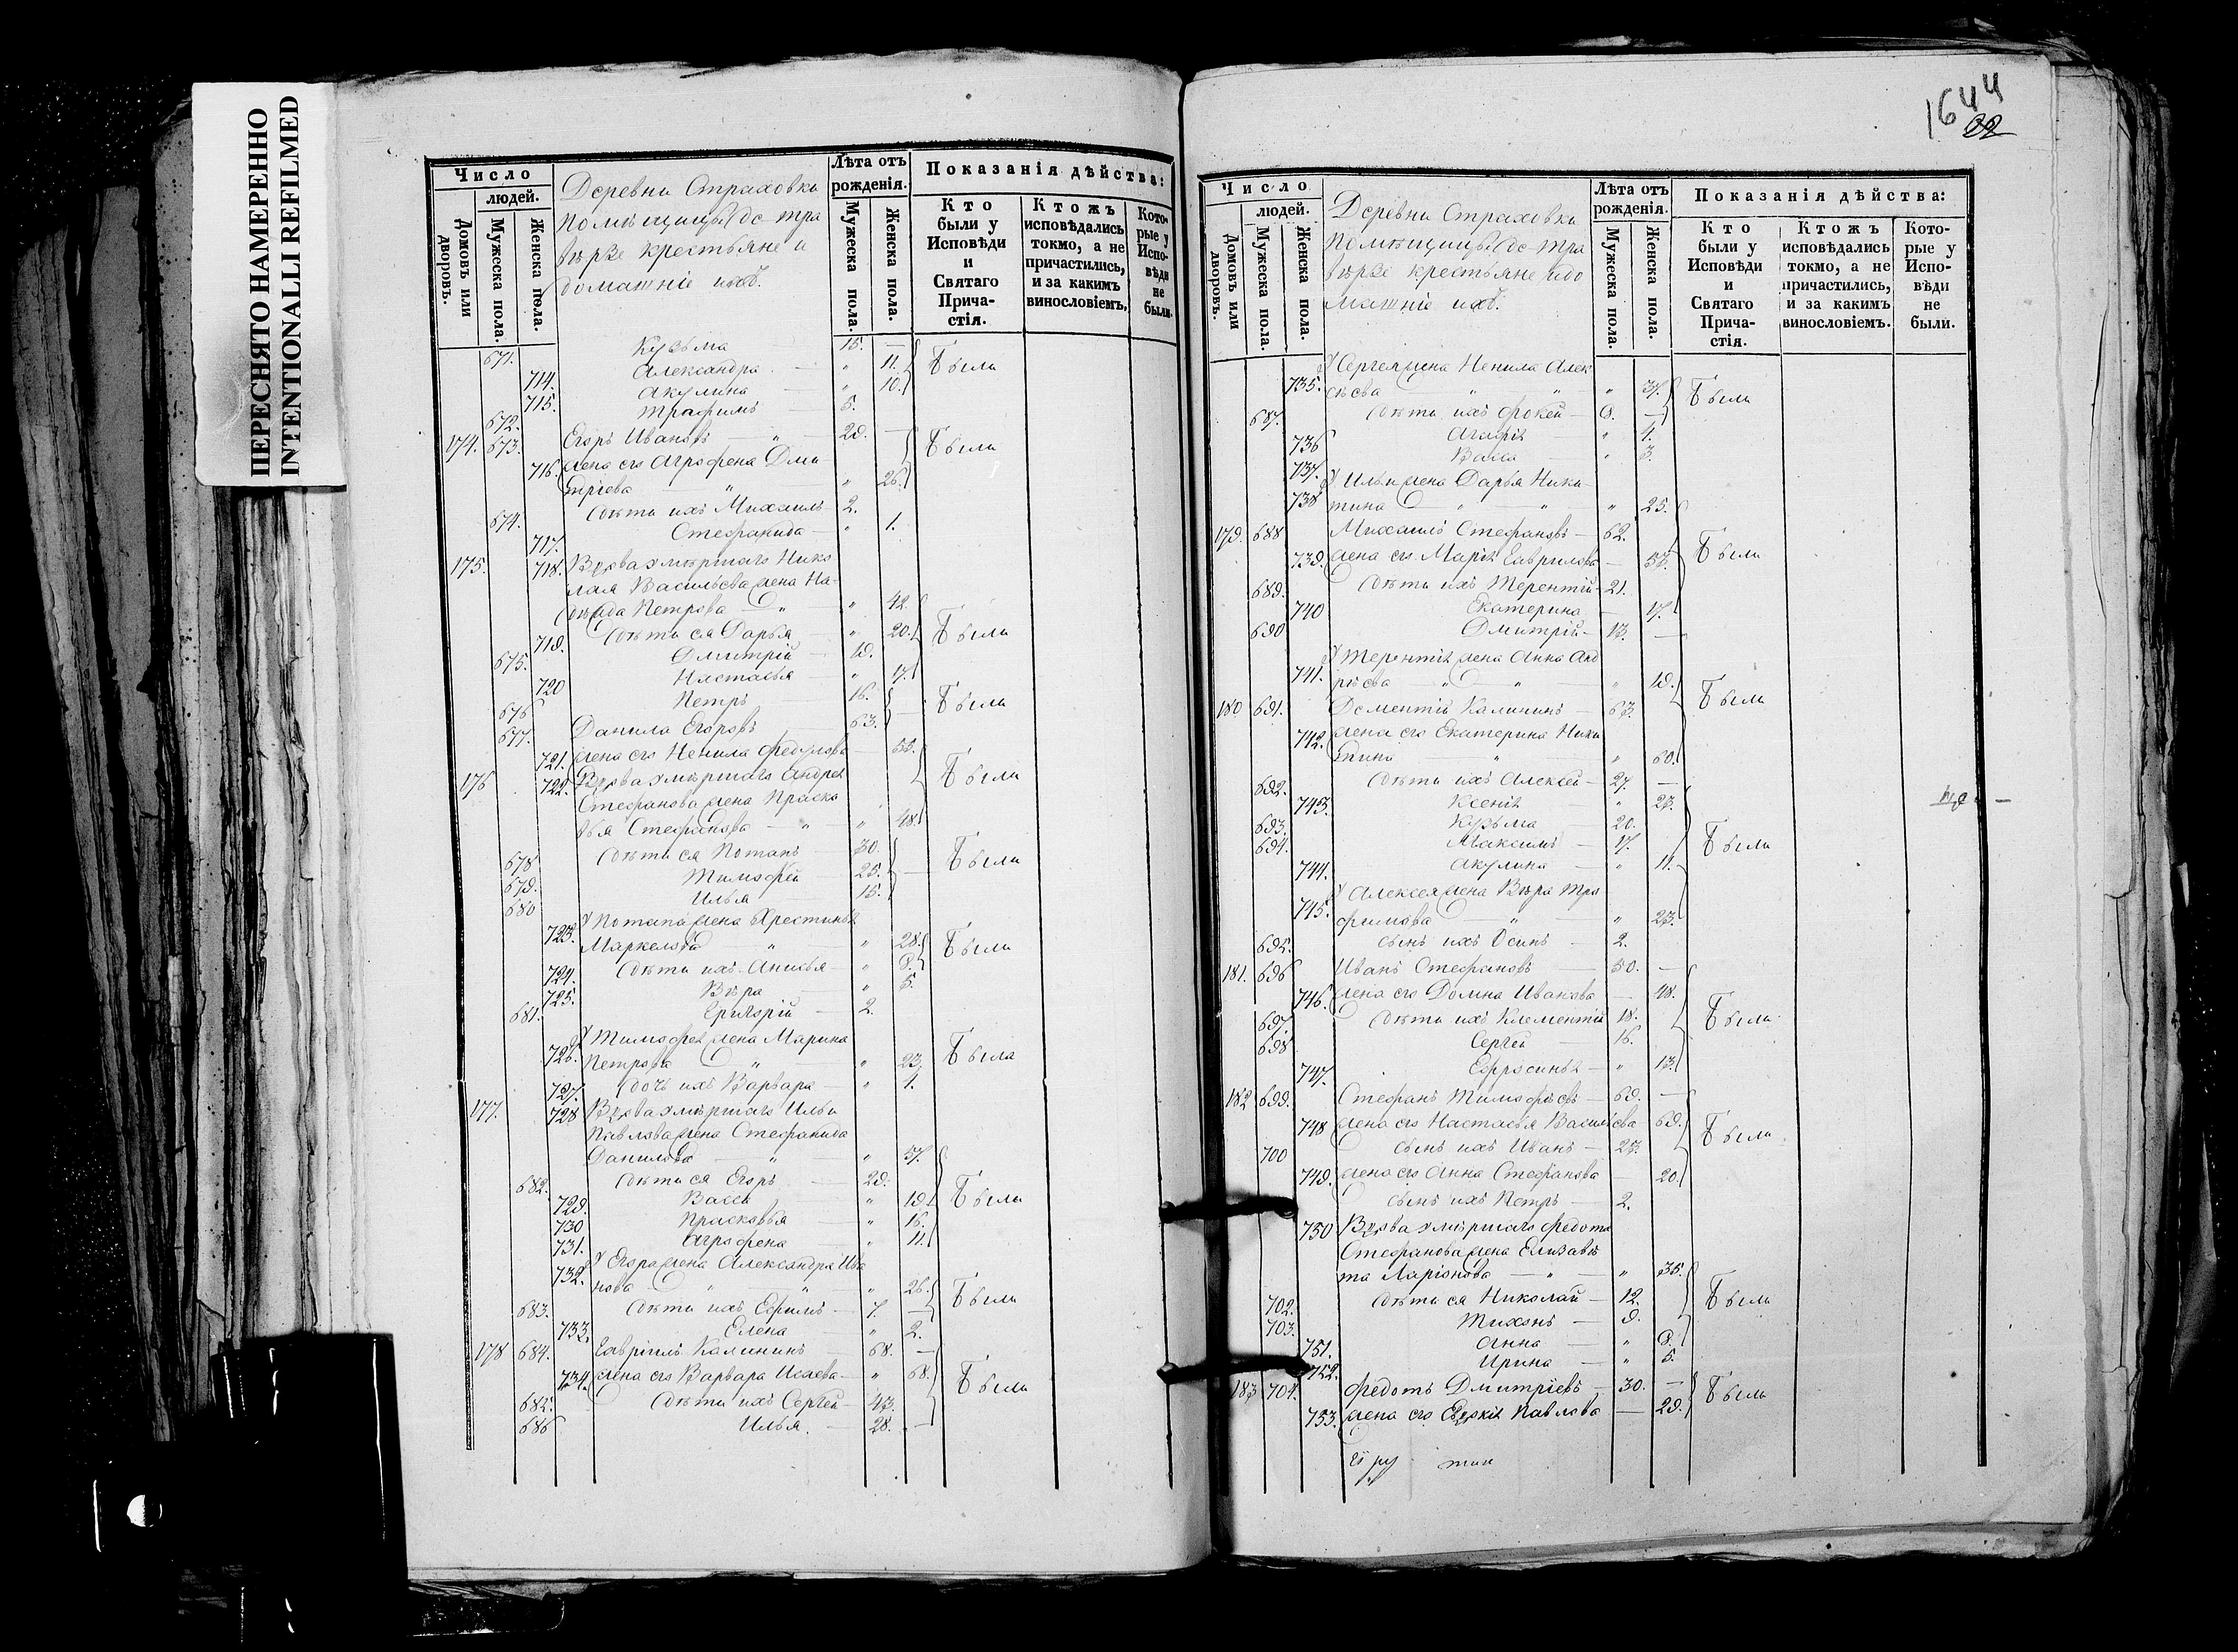 ПЕРЕСНЯТО НАМЕРЕННО
INTENTIONALLI REFILMED
Число
людей.
Домовъ или дворовъ.
Мужеска пола.
Женска пола.
Деревни Страховки
помѣщицы де тра
верзе крестьяне и
домашніе ихъ.
Лѣта отъ рожденія.
Мужеска пола.
Женска пола.
Показанія дѣйства:
Кто были у Исповѣди и Святаго Причастія.
Ктожъ исповѣдались токмо, а не причастились, и за какимъ винословіемъ.
Которые у Исповѣди не были.
671. Кузьма 15. —
714. Александра — " 11. Были
715. Акулина — " 10.
672. Трофимъ — 5.
174. 673. Егоръ Ивановъ " 29. —
716. жена его Агрофена Дми Были
тріева " " 26.
674. Дѣти ихъ Михаилъ 2.
717. Стефанида — " 1.
175. 718. Вдова умершаго Нико
лая Васильева жена На-
дѣжда Петрова — " " 42.
719. Дѣти ея Дарья " 20. Были
675. Дмитрій — 19.
720 Настасья — " 17.
676 Петръ 16. Были
677. Данила Егоровъ 63. —
721. жена его Ненила Федулова — 55.
176 722. Вдова умершаго Андрея Были
Стефанова жена Праско
вья Стефанова — " " 48.
678 Дѣти ея Потапъ 30.
679. Тимофей 25. — Были
680 Илья 15.
723. У Потапа жена Хрестинья
Маркелова " " 28. Были
724. Дѣти ихъ Анисья — " 8.
725. Вѣра — " 5.
681. Григорій — 2.
726. У Тимофея жена Марина
Петрова " " 23. Была
727. Дочь ихъ Варвара — " 1.
177. 728 Вдова умершаго Ильи
Павлова жена Стефанида
Данилова — " — " 57.
682. Дѣти ея Егоръ — 29.
729. Васса " 19. Были
730 Прасковья — " 16.
731. Агрофена — " 11.
732. У Егора жена Александра Ива
нова — " " " 26.
683. Дѣти ихъ Ефимъ — 7. — Были
733. Елена " 2.
178 684. Гавріилъ Калининъ — 68. —
734. жена его Варвара Исаева — " 68.
685. Дѣти ихъ Сергей — 43. Были
686 Илья. — 28. —
1644
22
Число
людей.
Домовъ или дворовъ.
Мужеска пола.
Женска пола.
Деревни Страховки
помѣщицы де-тра
верзе крестьяне и до
машніе ихъ.
Лѣта отъ рожденія.
Мужеска пола.
Женска пола.
Показанія дѣйства:
Кто были у Исповѣди и Святаго Причастія.
Ктожъ исповѣдались токмо, а не причастились, и за какимъ винословіемъ.
Которые у Исповѣди не были.
У Сергея жена Ненила Алек
735. сѣева " " " 37. Были
687. Дѣти ихъ Фокей — 8. —
736 Агафія " 4.
737. Васса — " 3.
738 У Ильи жена Дарья Ники-
тина " — " — " 25.
179. 688 Михаилъ Стефановъ — 62.
739. жена его Марія Гаврилова — 53. Были
689. Дѣти ихъ Терентій — 21.
740 Екатерина — 17.
690 Дмитрій — 13. —
У Терентія жена Анна Анд
741. рѣева " " " 19. Были
180 691. Дементій Калининъ — 63.
742. жена его Екатерина Ники
тина " " 60.
692. Дѣти ихъ Алексей — 27. —
743. Ксенія " 23.
693. Кузьма — 20.
694. Максимъ — 17. Были
744. Акулина — " 11.
745. У Алексея жена Вѣра Тро
фимова " " 23.
695. сынъ ихъ Осипъ — 2.
181. 696 Иванъ Стефановъ — 50. —
746. жена его Домна Иванова — 48.
697. Дѣти ихъ Клементій 18. Были
698 Сергей — 16.
747. Ефросинья — " 13.
182 699. Стефанъ Тимофѣевъ — 69. —
748 жена его Настасья Васильева 69.
700 сынъ ихъ Иванъ — 23. Были
749. жена его Анна Стефанова — 20.
сынъ ихъ Петръ — 2.
750 Вдова умершаго Федота
Стефанова жена Елизаве
та Ларіонова — " — " 35.
702. Дѣти ея Николай — 12. Были
703. Тихонъ — 9.
751. Анна — " 8.
752. Ирина — " 5.
183 704. Федотъ Дмитріевъ — 30. — Были
753. жена его Евдокія Павлова — 29.